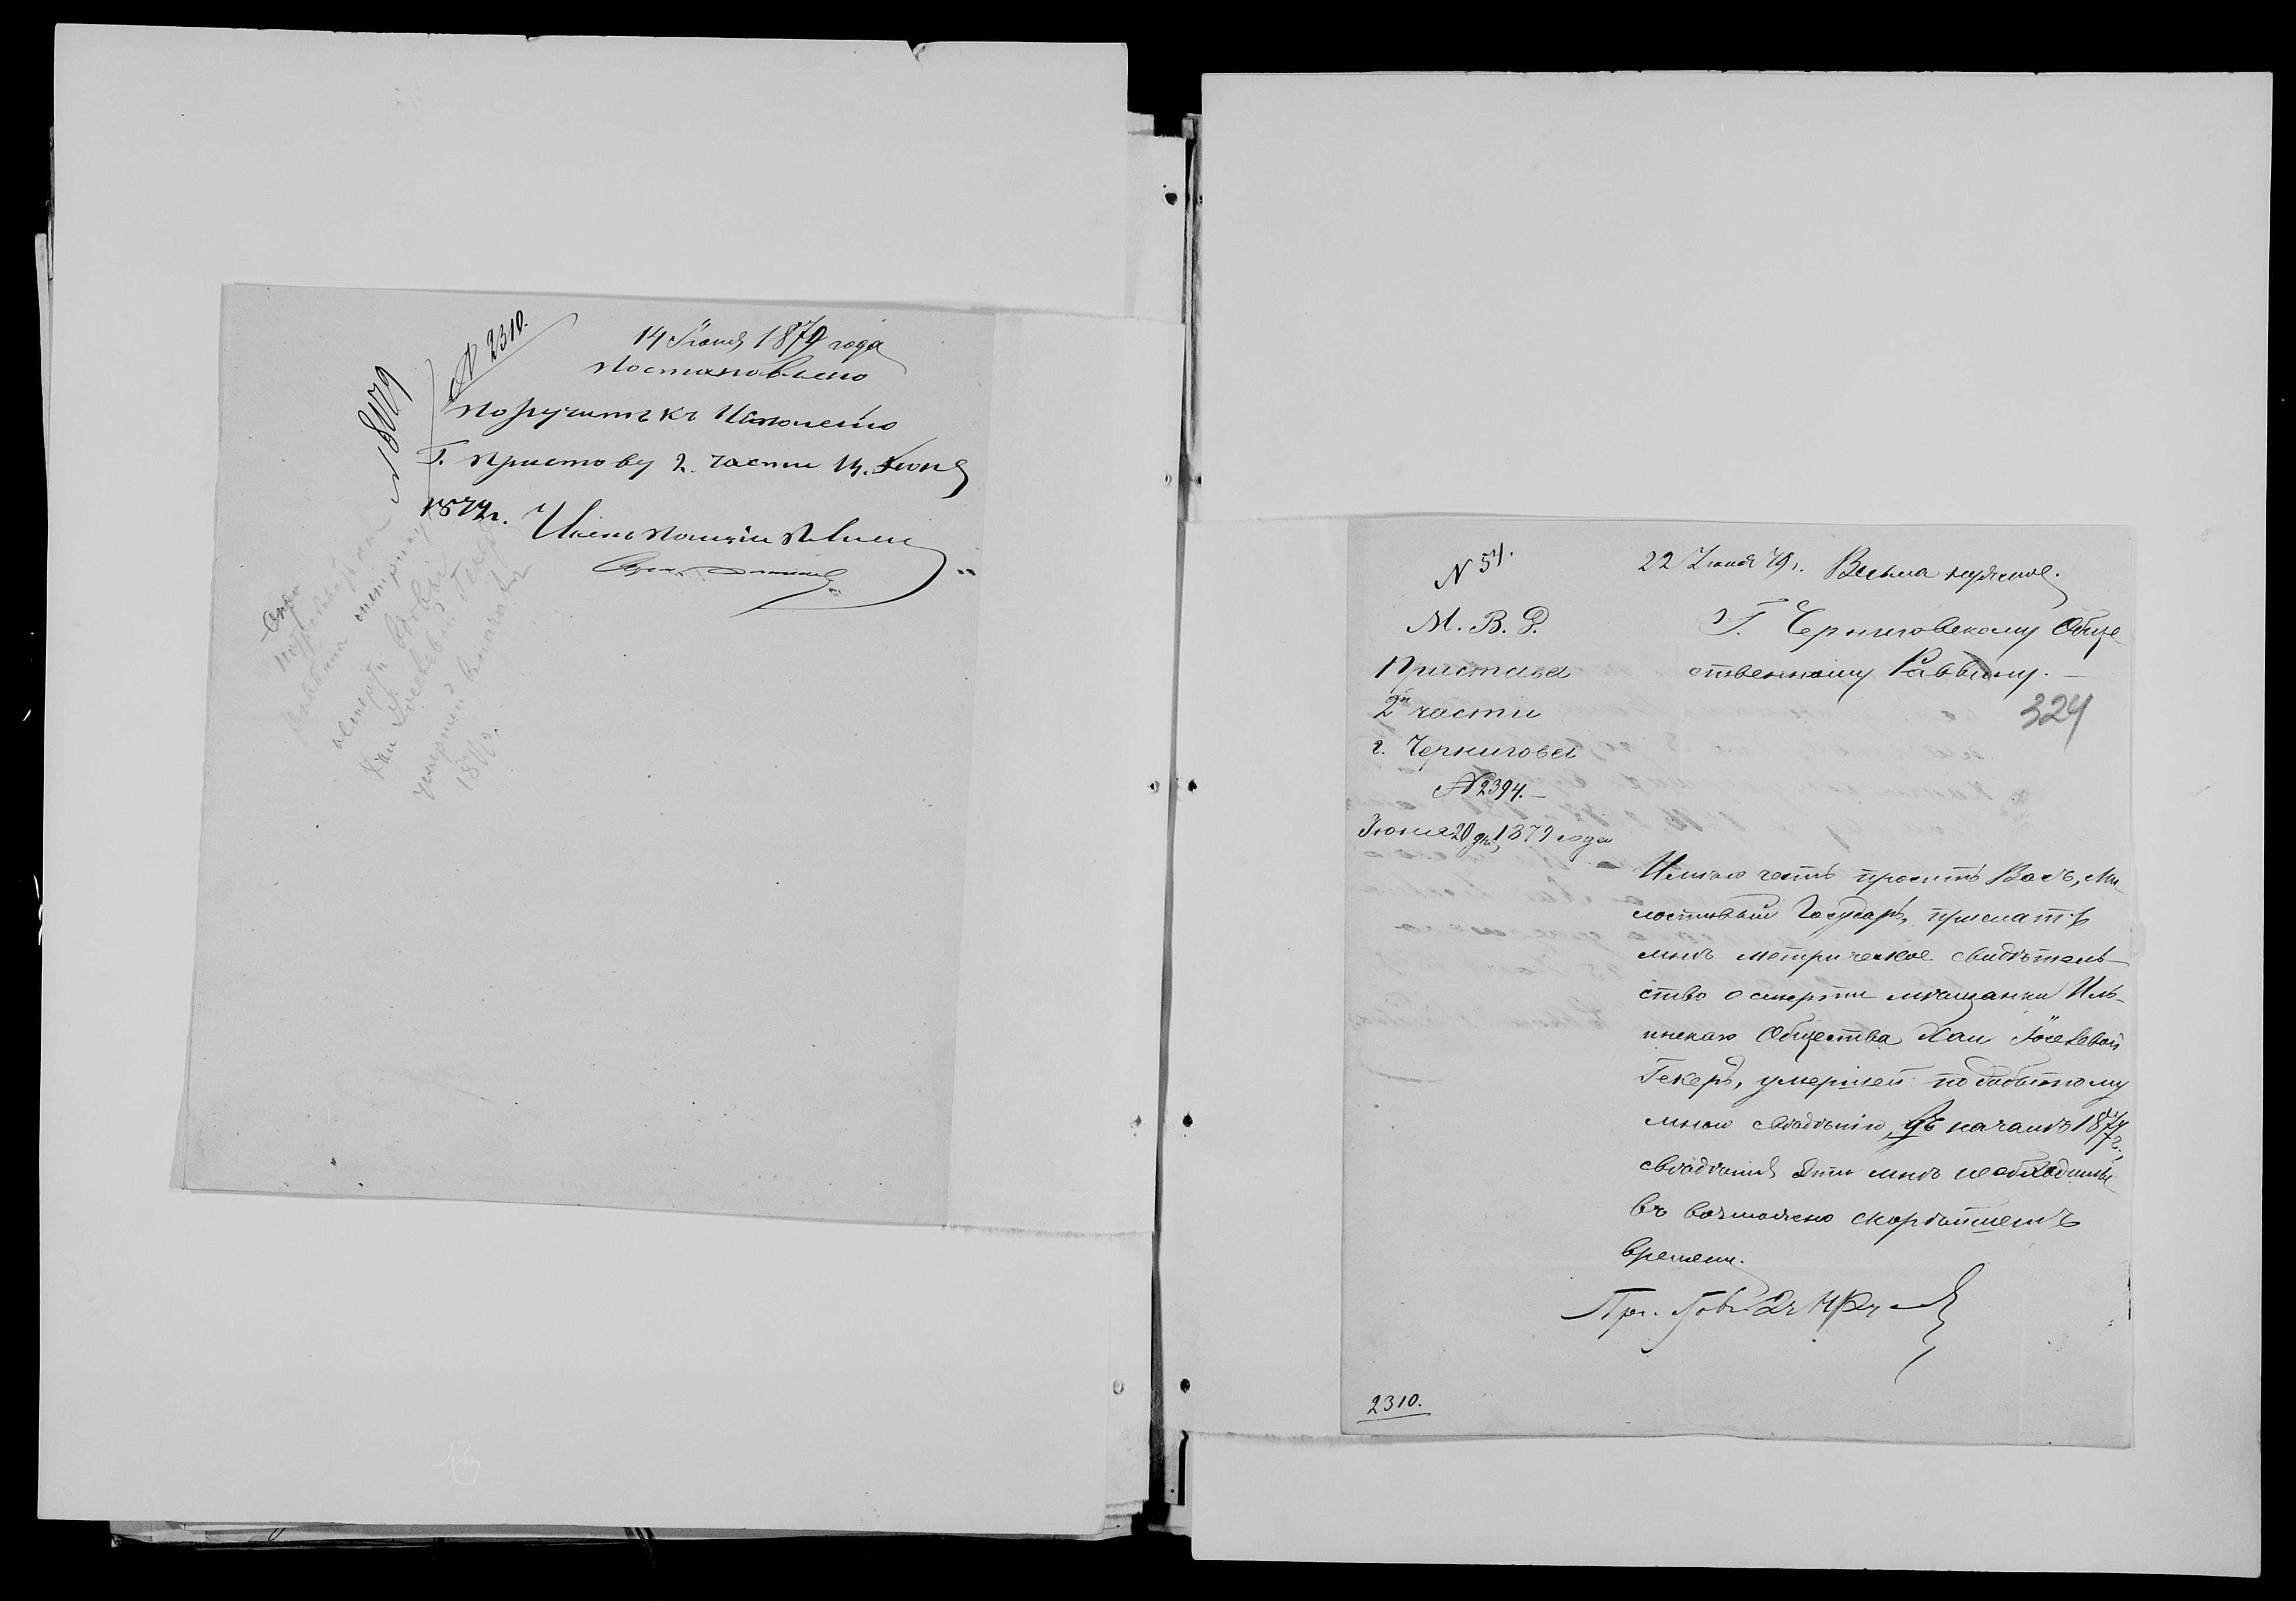 N 2310.
14 Іюня 1879 года
Постановлено
Поручить къ Исполнению
Г. Приставу 2. части 14. Июня
1879г.
N 8079
раввина метрику
о смерти вдовы
Хаи Іосевой Гекер
умершей въ начале
N 54.
22 Іюня 79г. Весьма нужное.
М. В. Д.
Пристава
2й части
г. Чернигова
N 2394.
Іюня 20 дня 1879 года
Г. Черниговскому Обще
ственному Раввину.
324
Имѣю честь просить Васъ, Ми-
лостивый Государь, прислать
мнѣ метрическое свидѣтель-
ство о смерти мѣщанки Иль-
инскаго Общества Хаи Іосевой
Гекеръ, умершей по добытому
мною свѣдѣнію, въ началѣ 1877г.,
свѣдѣнія эти мнѣ необходимы
въ возможно скорѣйшемъ
времени.
2310.